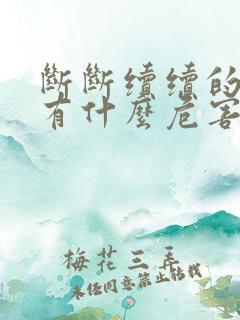 斷斷續續的
有什麼危害
梅花三弄
未經同意禁止轉載